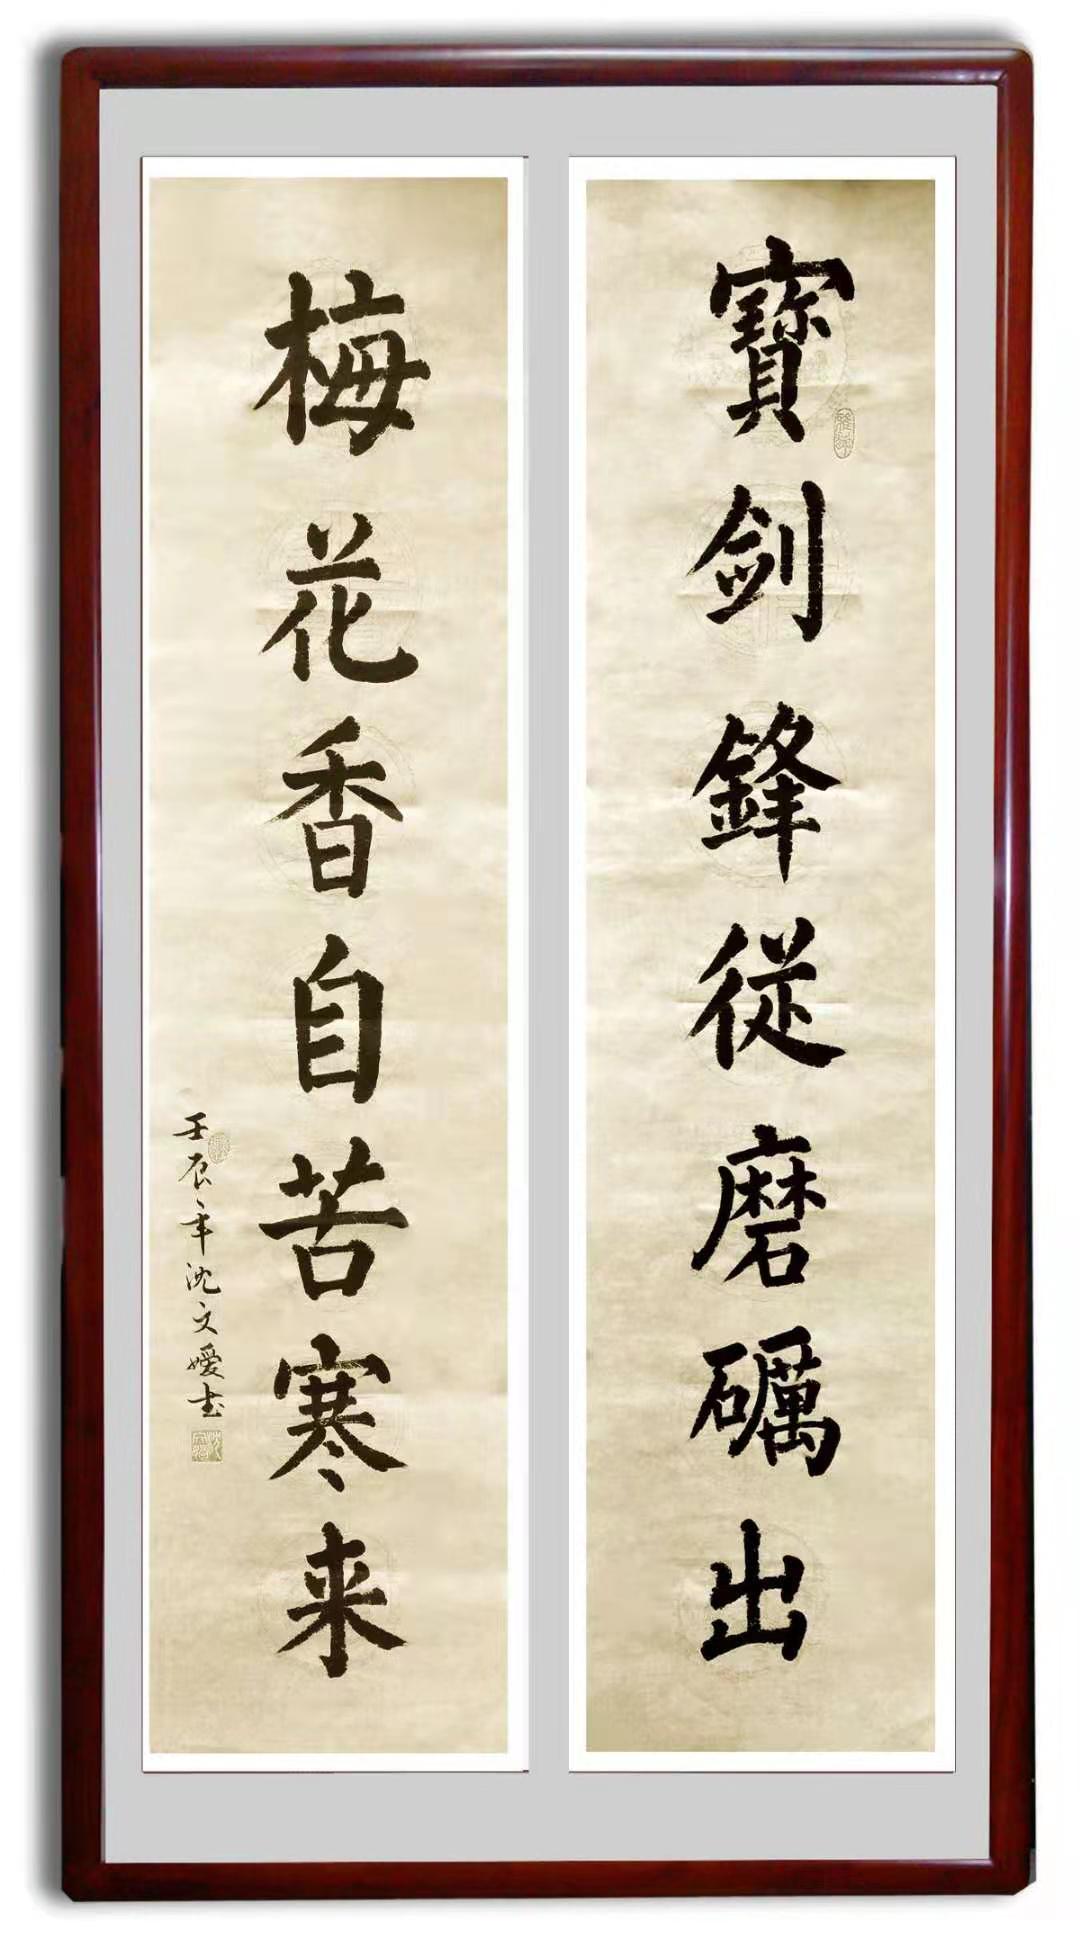 寶剑鋒從磨礪出
梅花香自苦寒来
壬辰年沈文嬡书